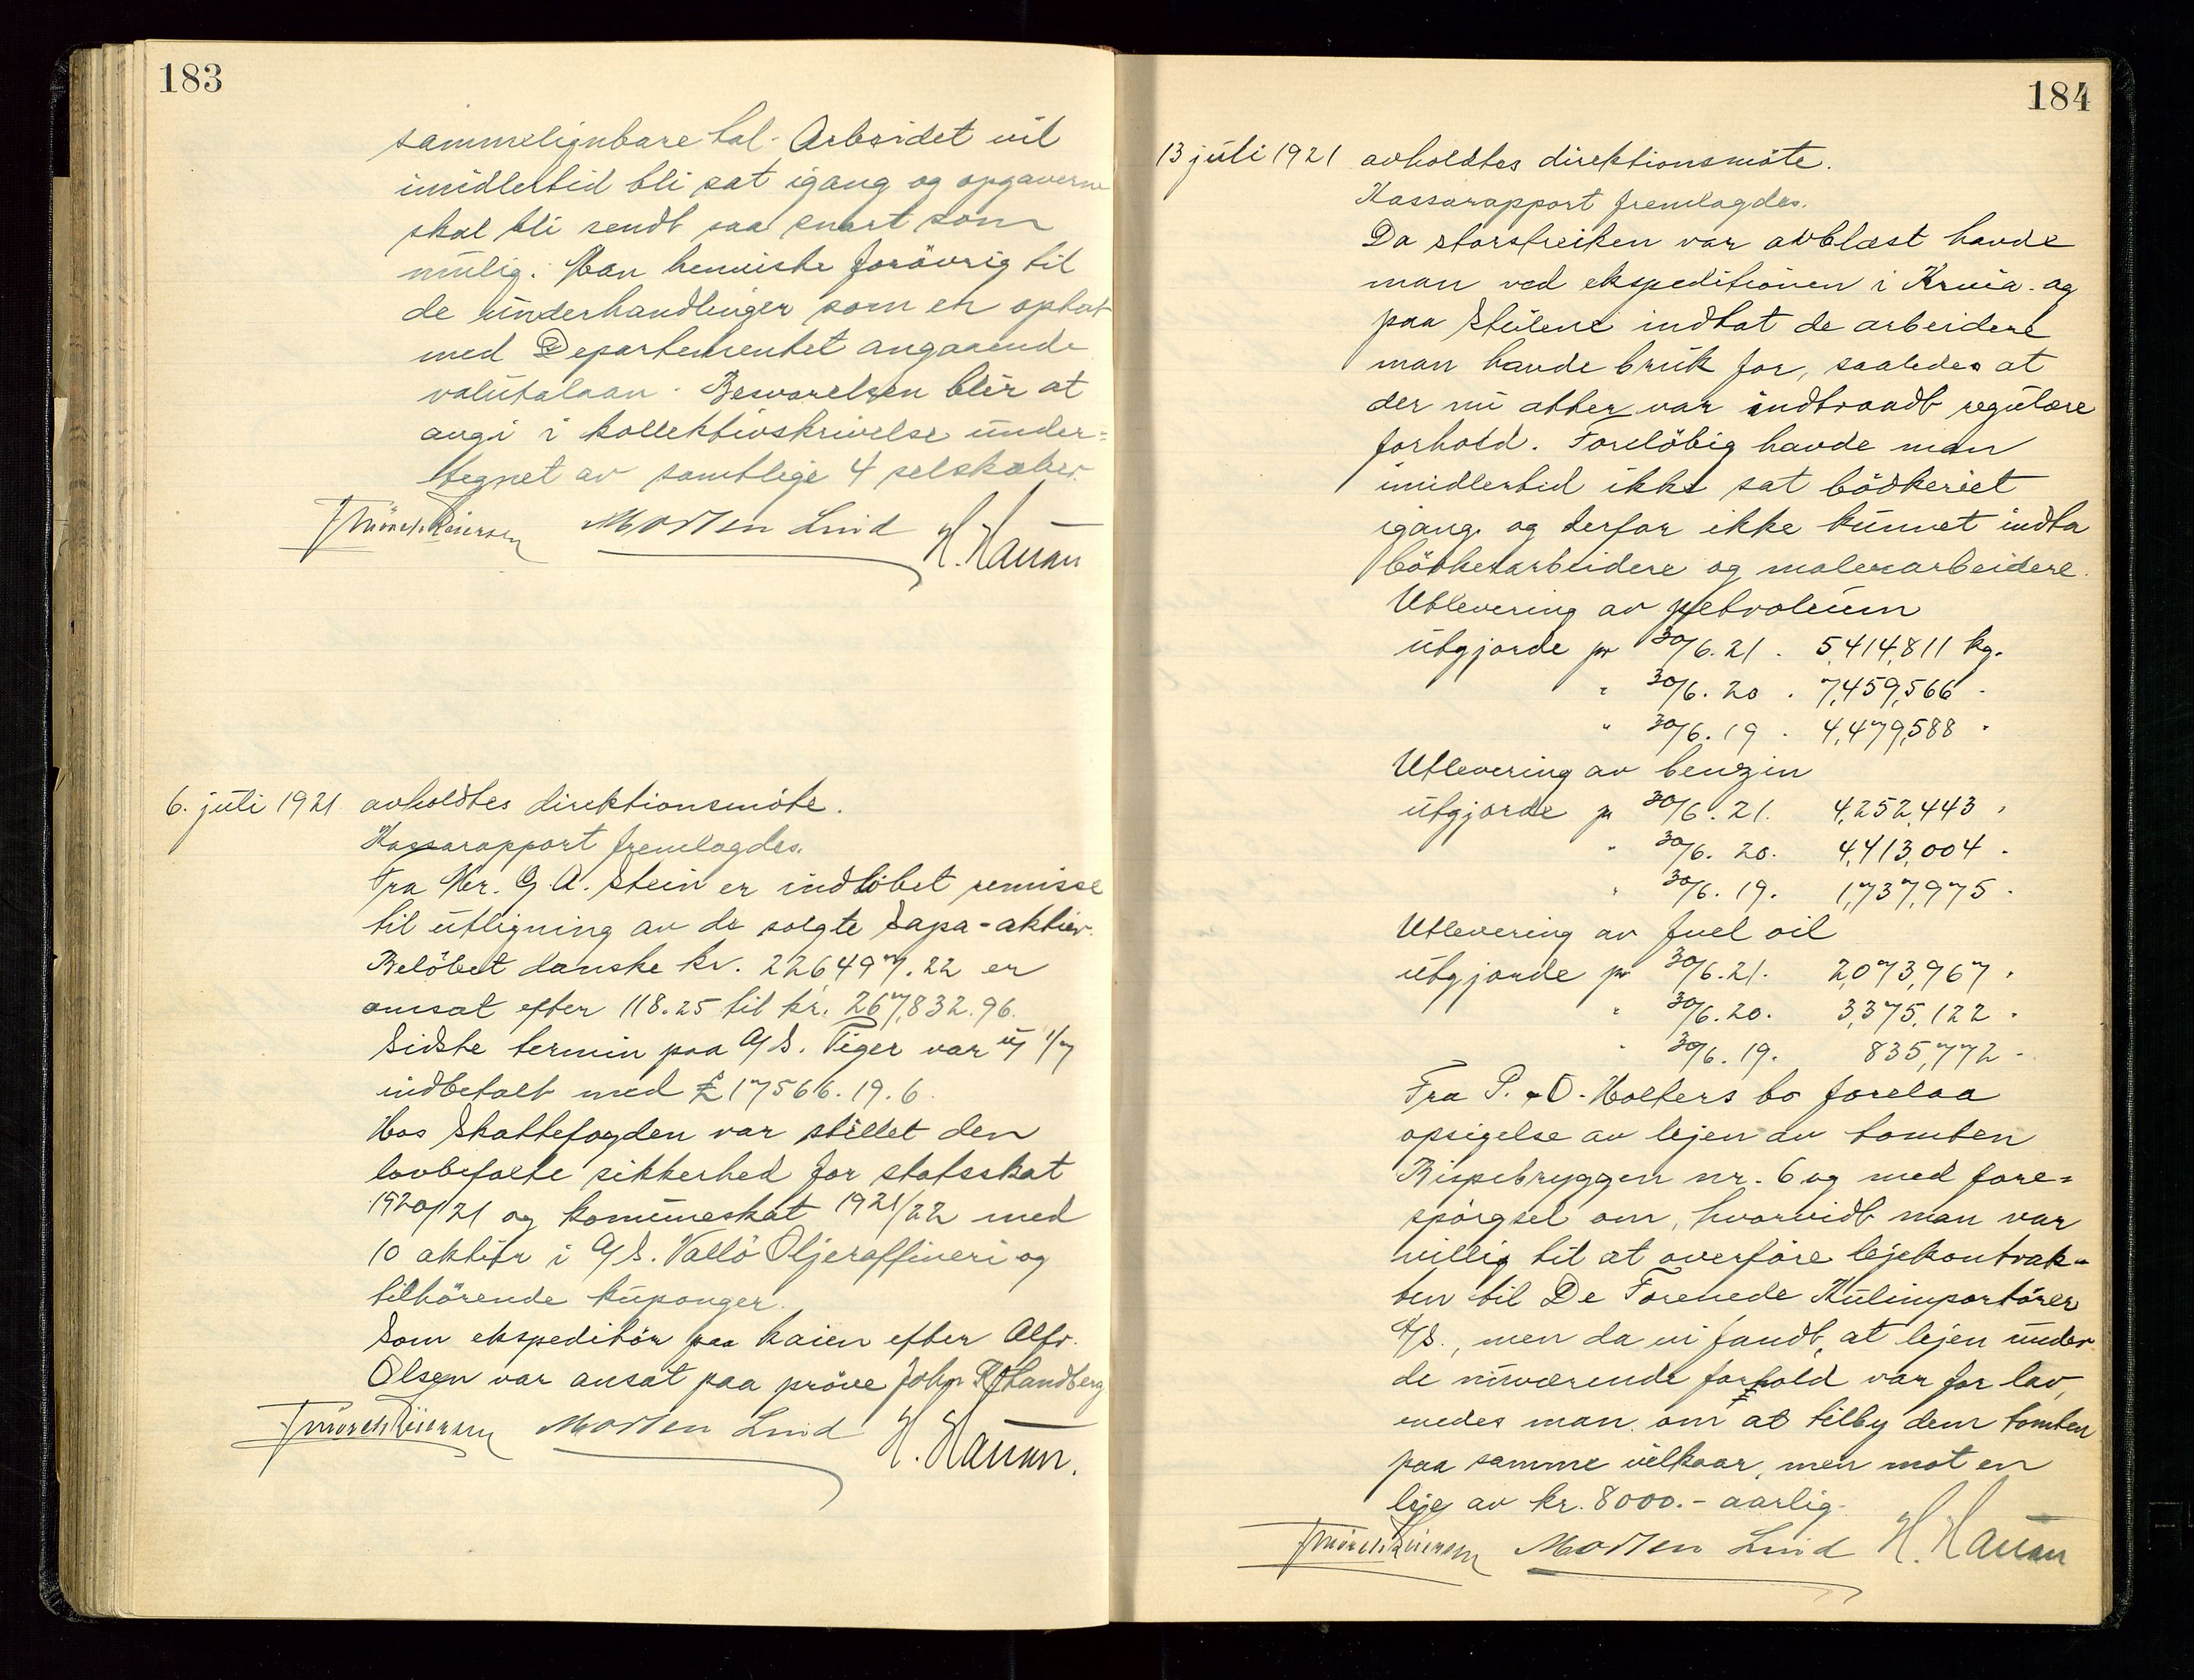 183
sammelignbare tal. Arbeidet vil
imidlertid bli sat igang og opgaverne
skal bli sendt saa snart som
mulig. Man henviste forövrig til
de underhandlinger som er optat
med Departementet angaaende
valutalaan. Besvarelsen blir at
avgi i kollektivskrivelse under=
tegnet av samtlige 4 selskaber.
Morten Lind H. Hansen
6. juli 1921 avholdtes direktionsmöte.
Kassarapport fremlagdes.
Fra Hr. G. A. Stein er indlöbet remisse
til utligning av de solgte Sapa-aktier.
Belöbet danske kr. 226497.22 er
omsat efter 118.25 til kr. 267,832.96.
Sidste termin paa A/S. Tiger var 1/7
indbetalt med £17566.19.6.
Hos Skattefogden var stillet den
lovbefalte sikkerhed for statsskat
1920/21 og kommuneskat 1921/22 med
10 aktier i A/S. Vallö Oljeraffineri og
tilhörende kuponger.
Som ekspeditör paa kaien efter Alfr.
Olsen var ansat paa pröve John Strandberg
Morten Lind H. Hansen.
184
13 juli 1921 avholdtes direktionsmöte.
Kassarapport fremlagdes.
Da storstreiken var avblæst havde
man ved ekspeditionen i Krnia. og
paa Stilene indtat de arbeidere
man havde bruk for, saaledes at
der nu atter var indtraadt regulære
forhold. Forelöbig havde man
imidlertid ikke sat bödkeriet
igang og derfor ikke kunnet indta
bödkerarbeidere og malerarbeidere.
Utlevering av petroleum
utgjorde pr 30/6.21. 5,414,811 kg.
" 30/6.20. 7,459,566 "
" 30/6.19. 4,479,588 "
Utlevering av benzin
utgjorde pr 30/6.21. 4,252,443 "
" 30/6.20. 4,413,004 "
" 30/6.19. 1,737,975 "
Utlevering av fuel oil
utgjorde pr 30/6.21. 2,073,967 "
" 30/6.20. 3,375,122 "
" 30/6.19. 835,772 "
Fra P. & O. Holters bo forelaa
opsigelse av lejen av tomten
Bispebryggen nr. 6 og med fore=
spörgsel om, hvorvidt man var
villig til at overföre lejekontrak-
ten til De Forenede Kulimportörer
A/S., men da vi fandt, at lejen under
de nuværende forhold var for lav,
enedes man om at tilby dem tomten
paa samme vilkaar, men mot en
leje av kr. 8000.- aarlig.
Morten Lind H. Hansen